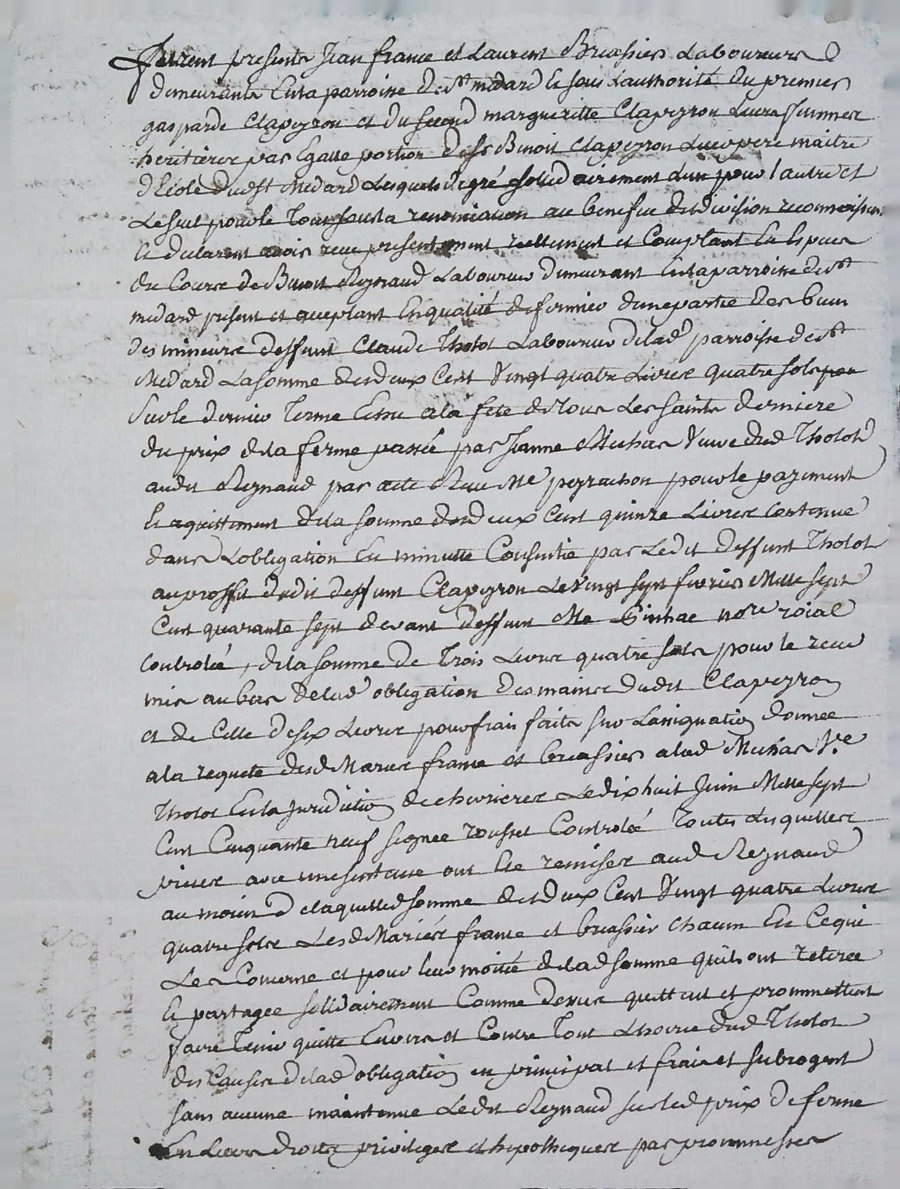 furent presents Jean france et Laurent Brassier Laboureurs
demeurants En la parroisse de st medard Et sous L'authorité du premier
gasparde Clapeyron et du second margueritte Clapeyron Leurs femmes
heritieres par Egalle portion de Sr Benoit Clapeyron Leur pere maitre
d'Ecole dudt st Medard Lesquels de gré sollidairement L'un pour l'autre et
Le seul pour le Tout sous La renonciation au benefice de division reconnoissent
Et declarent avoir receu presentement reellement et Comptant En Espece
du Cours de Benoit Reynaud Laboureur demeurant En la parroisse de st
medard present et acceptant En qualité de fermier d'une partie des biens
des mineurs deffunt Claude Tholot Laboureur de lad parroisse de st
Medard La somme de deux Cent Vingt quatre Livres quatre sols
sur le dernier Terme Echu a la fete de Tous Les saints derniere
du prix de la ferme passée par Jeanne Michas Veuve dud Tholot
audit Reynaud par acte Receu Me peyrachon pour le payement
Et aquittement de la somme de deux Cent quinze Livres Contenue
dans L'obligation En minutte Consentie par Ledit deffunt Tholot
au proffit dudit deffunt Clapeyron Le Vingt sept fevrier Mille sept
Cent quarante sept devant deffunt Me nore roial
Controlée, de la somme de Trois Livres quatre sols pour le receu
mis au bas de lad obligation des mains dudit Clapeyron
et de Celle de six Livres pour frais faits sur L'asignation donnée
a la requete desd Mariés france et Brassier a lad Michas Ve
Tholot En la Juridiction de chevrieres Le dix huit Juin Mille sept
Cent Cinquante neuf signée rousset Controlée Toutes Lesquelles
pieces avec une sentence ont Eté remises aud Reynaud
au moien de laquelle somme de deux Cent Vingt quatre Livres
quatre sols Lesd Mariés france et Brassier chacun En Ce qui
Les Concerne et pour leur moitié de lad somme qu'ils ont retirée
Et partagée sollidairement Comme dessus quittent et promettent
faire Tenir quitte Envers et Contre Tout L'hoirie dud Tholot
des Causes de lad obligation en principal et frais et subrogent
sans aucune maintenue Ledit Reynaud sur led prix de ferme
En Leurs droits privileges et hipotheques par promesses